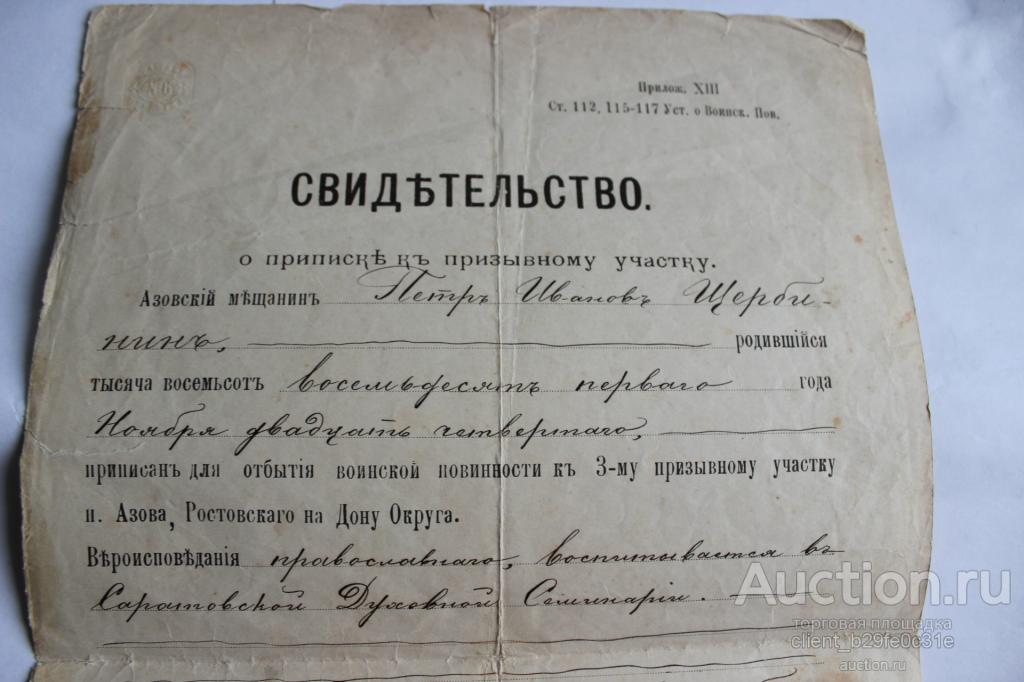 Прилож. XIII
Ст. 112, 115-117 Уст. о Воинск. Пов.
СВИДѢТЕЛЬСТВО.
о припискѣ къ призывному участку.
Азовскій мѣщанинъ Петръ Ивановъ Щерби-
нинъ, родившійся
тысяча восемьсотъ восемьдесятъ перваго года
Ноября двадцать четвертаго,
приписанъ для отбытія воинской повинности къ 3-му призывному участку
п. Азова, Ростовскаго на Дону Округа.
Вѣроисповѣданія православнаго, воспитывается въ
Саратовской Духовной Семинаріи.
Auction.ru
торговая площадка
client_b29fe0c31e
auction.ru